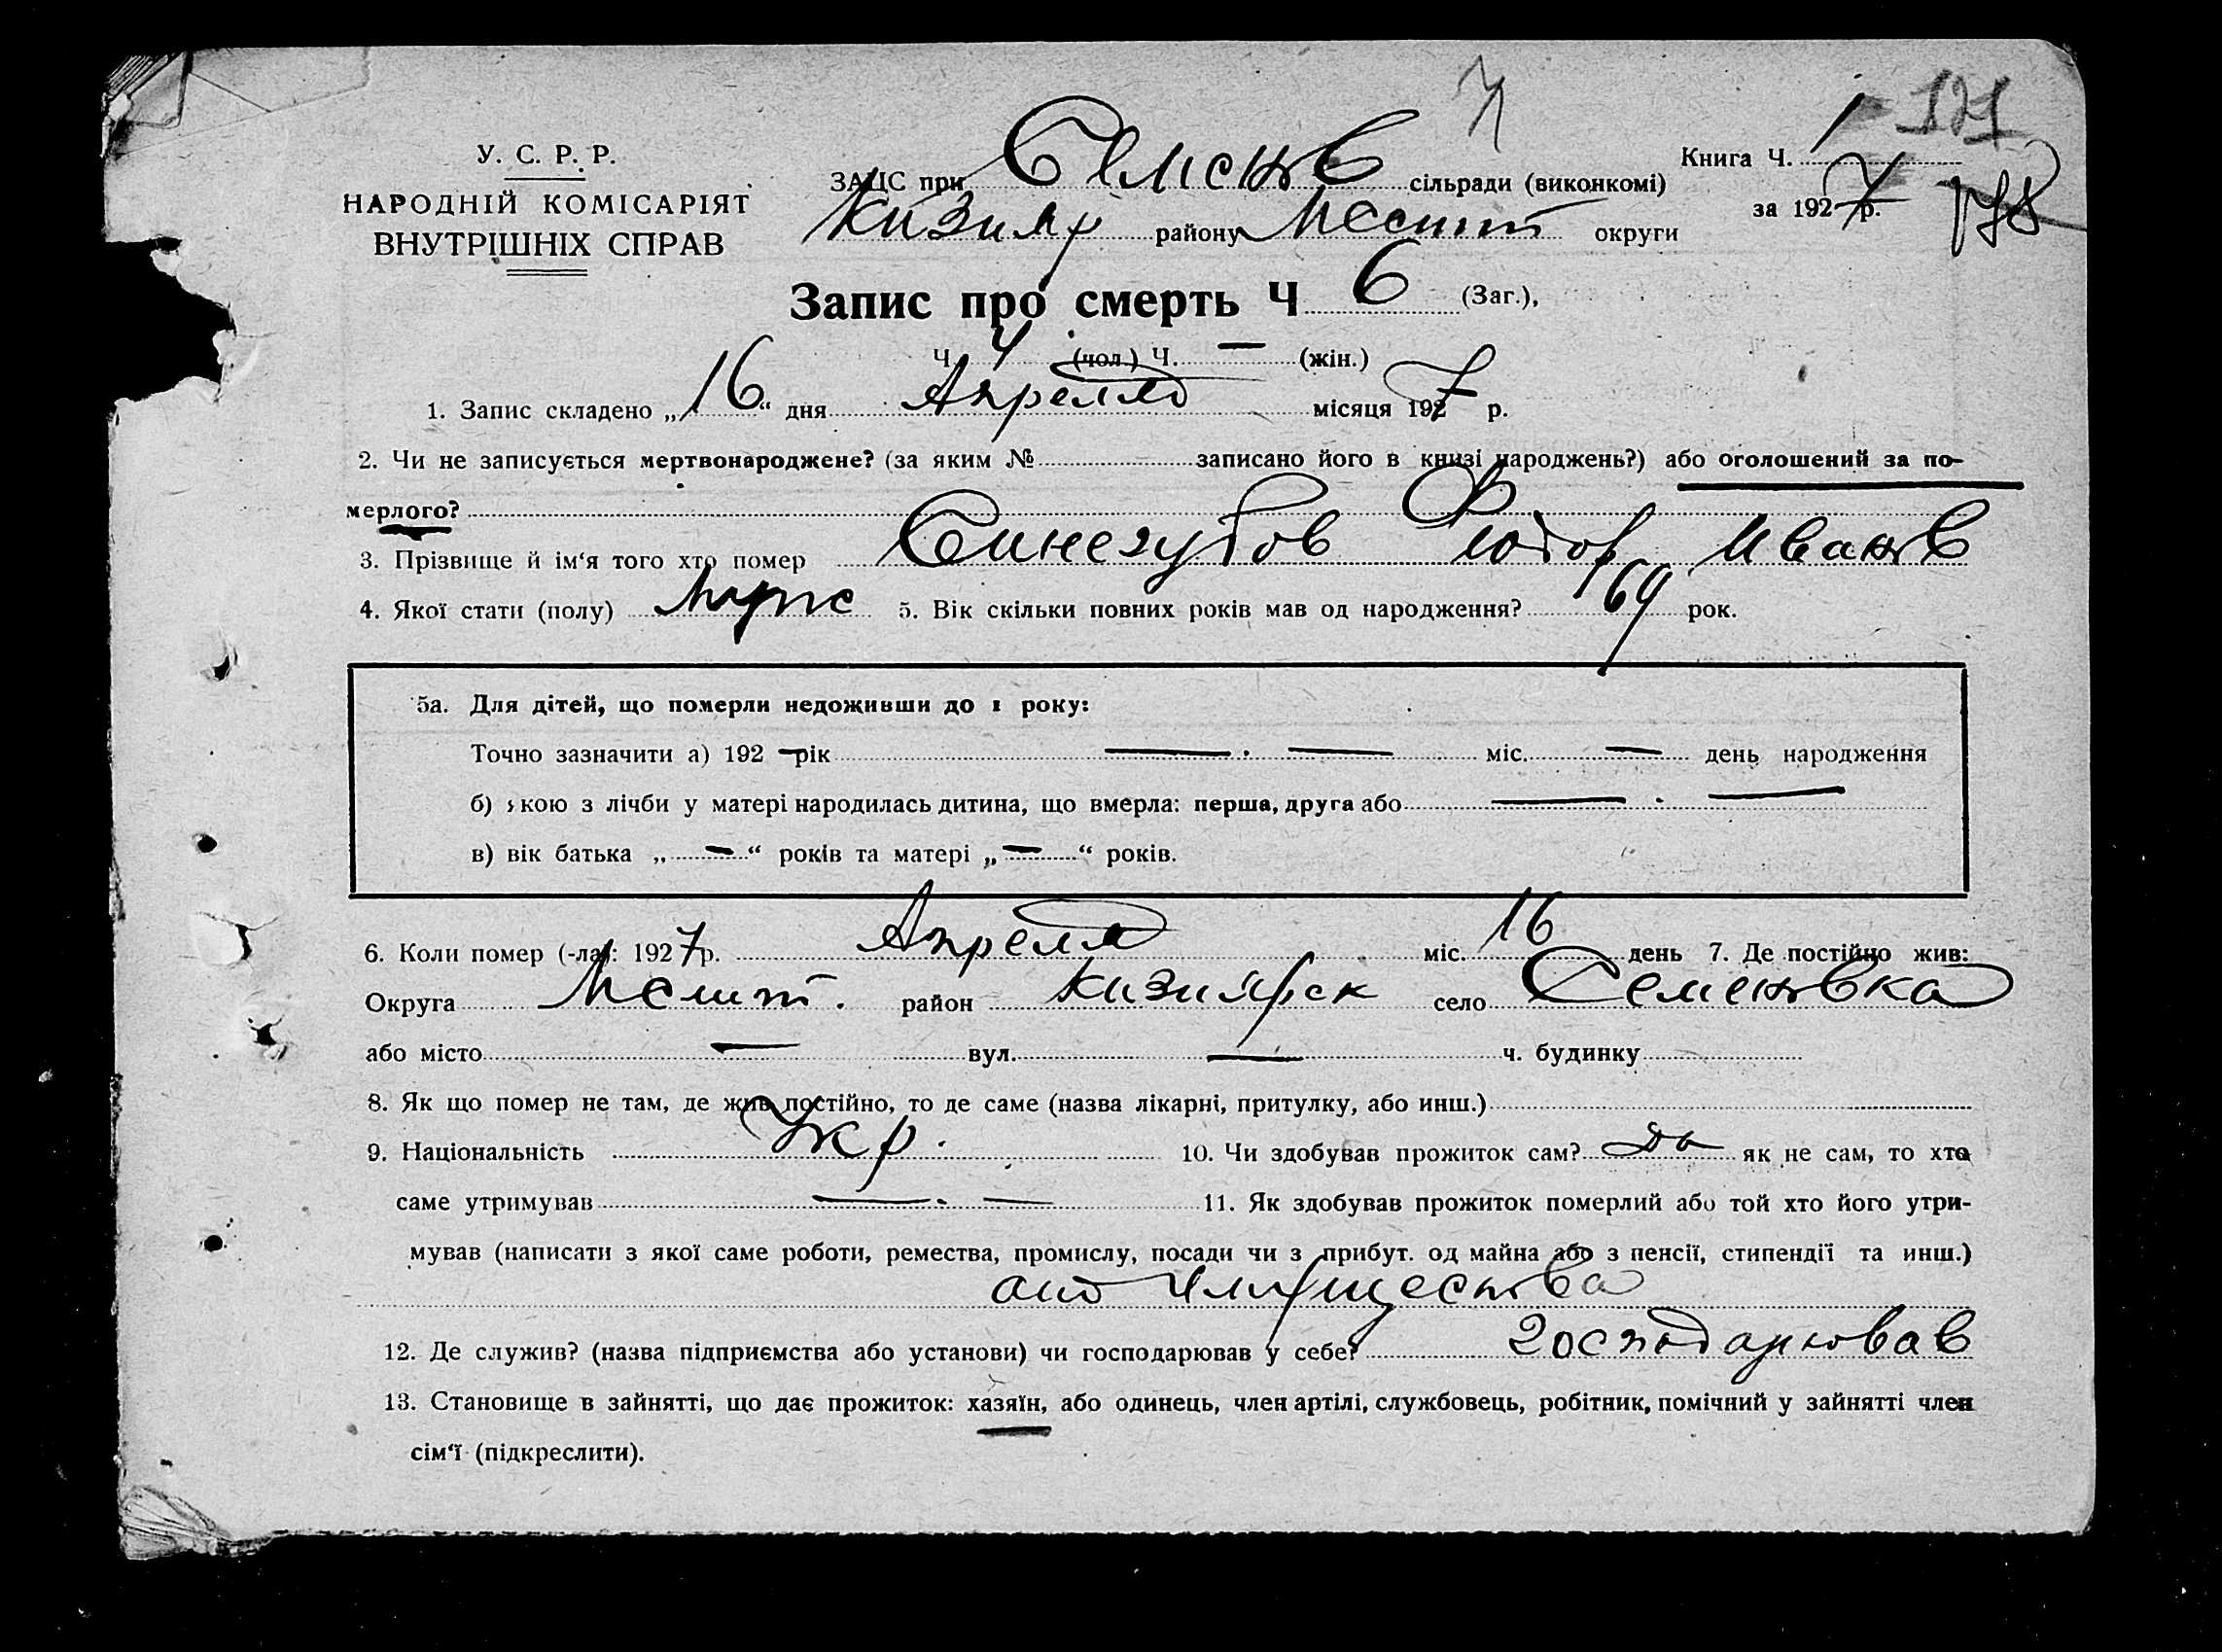 7
1 121
У. С. Р. Р.
НАРОДНІЙ КОМІСАРІЯТ
ВНУТРІШНІХ СПРАВ
ЗАЦС при Семенов сільради (виконкомі)
Кизияр району Мелит округи
Книга Ч. 1
за 1927 р.
Запис про смерть Ч 6 (Заг.),
Ч. 4 (чол.) Ч. — (жін.)
1. Запис складено „16“ дня Апреля місяця 1927 р.
2. Чи не записується мертвонароджене? (за яким № записано його в книзі народжень?) або оголошений за по-
мерлого?
3. Прізвище й ім‘я того хто помер Синегубов Фиодор Иванов
4. Якої стати (полу) муж 5. Вік скільки повних років мав од народження? 69 рок.
5а. Для дітей, що померли недоживши до 1 року:
Точно зазначити а) 192 — рік — · — міс. — день народження
б) якою з лічби у матері народилась дитина, що вмерла: перша, друга або — · —
в) вік батька „ — “ років та матері „ — “ років.
6. Коли помер (-ла): 1927 р. Апреля міс. 16 день 7. Де постійно жив:
Округа Мелит. район Кизиярск село Семеновка
або місто — вул. — ч. будинку
8. Як що помер не там, де жив постійно, то де саме (назва лікарні, притулку, або инш.)
9. Національність Укр. 10. Чи здобував прожиток сам? Да як не сам, то хто
саме утримував — · — 11. Як здобував прожиток померлий або той хто його утри-
мував (написати з якої саме роботи, ремества, промислу, посади чи з прибут. од майна або з пенсії, стипендії та инш.)
от имущества
12. Де служив? (назва підприємства або установи) чи господарював у себе? господарював
13. Становище в зайнятті, що дає прожиток: хазяїн, або одинець, член артілі, службовець, робітник, помічний у зайнятті член
сім‘ї (підкреслити).